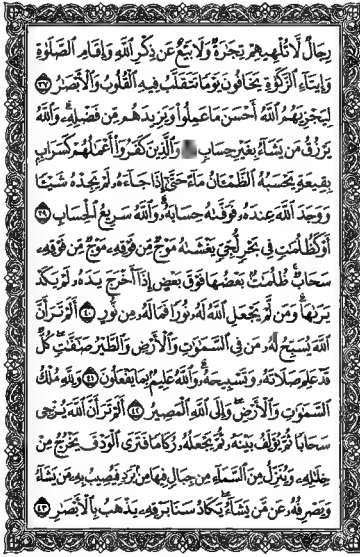 رِجَالٌ لَّا تُلْهِيهِمْ تِجَٰرَةٌ وَلَا بَيْعٌ عَن ذِكْرِ ٱللَّهِ وَإِقَامِ ٱلصَّلَوٰةِ
وَإِيتَآءِ ٱلزَّكَوٰةِ يَخَافُونَ يَوْمًا تَتَقَلَّبُ فِيهِ ٱلْقُلُوبُ وَٱلْأَبْصَٰرُ ٣٧
لِيَجْزِيَهُمُ ٱللَّهُ أَحْسَنَ مَا عَمِلُوا۟ وَيَزِيدَهُم مِّن فَضْلِهِۦ ۗ وَٱللَّهُ
يَرْزُقُ مَن يَشَآءُ بِغَيْرِ حِسَابٍ وَٱلَّذِينَ كَفَرُوٓا۟ أَعْمَٰلُهُمْ كَسَرَابٍۭ
بِقِيعَةٍ يَحْسَبُهُ ٱلظَّمْـَٔانُ مَآءً حَتَّىٰٓ إِذَا جَآءَهُۥ لَمْ يَجِدْهُ شَيْـًٔا
وَوَجَدَ ٱللَّهَ عِندَهُۥ فَوَفَّىٰهُ حِسَابَهُۥ ۗ وَٱللَّهُ سَرِيعُ ٱلْحِسَابِ ٣٩
أَوْ كَظُلُمَٰتٍ فِى بَحْرٍ لُّجِّىٍّ يَغْشَىٰهُ مَوْجٌ مِّن فَوْقِهِۦ مَوْجٌ مِّن فَوْقِهِۦ
سَحَابٌ ۚ ظُلُمَٰتٌۢ بَعْضُهَا فَوْقَ بَعْضٍ إِذَآ أَخْرَجَ يَدَهُۥ لَمْ يَكَدْ
يَرَىٰهَا ۗ وَمَن لَّمْ يَجْعَلِ ٱللَّهُ لَهُۥ نُورًا فَمَا لَهُۥ مِن نُّورٍ ٤٠ أَلَمْ تَرَ أَنَّ
ٱللَّهَ يُسَبِّحُ لَهُۥ مَن فِى ٱلسَّمَٰوَٰتِ وَٱلْأَرْضِ وَٱلطَّيْرُ صَٰٓفَّٰتٍ ۖ كُلٌّ
قَدْ عَلِمَ صَلَاتَهُۥ وَتَسْبِيحَهُۥ ۗ وَٱللَّهُ عَلِيمٌۢ بِمَا يَفْعَلُونَ ٤١ وَلِلَّهِ مُلْكُ
ٱلسَّمَٰوَٰتِ وَٱلْأَرْضِ ۖ وَإِلَى ٱللَّهِ ٱلْمَصِيرُ ٤٢ أَلَمْ تَرَ أَنَّ ٱللَّهَ يُزْجِى
سَحَابًا ثُمَّ يُؤَلِّفُ بَيْنَهُۥ ثُمَّ يَجْعَلُهُۥ رُكَامًا فَتَرَى ٱلْوَدْقَ يَخْرُجُ مِنْ
خِلَٰلِهِۦ وَيُنَزِّلُ مِنَ ٱلسَّمَآءِ مِن جِبَالٍ فِيهَا مِنۢ بَرَدٍ فَيُصِيبُ بِهِۦ مَن يَشَآءُ
وَيَصْرِفُهُۥ عَن مَّن يَشَآءُ ۖ يَكَادُ سَنَا بَرْقِهِۦ يَذْهَبُ بِٱلْأَبْصَٰرِ ٤٣